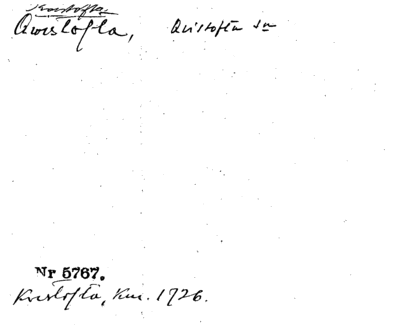 Kvistofta
Qvistofta, Qvistofta sn
Nr 5767.
Kvistofta, km. 1726.